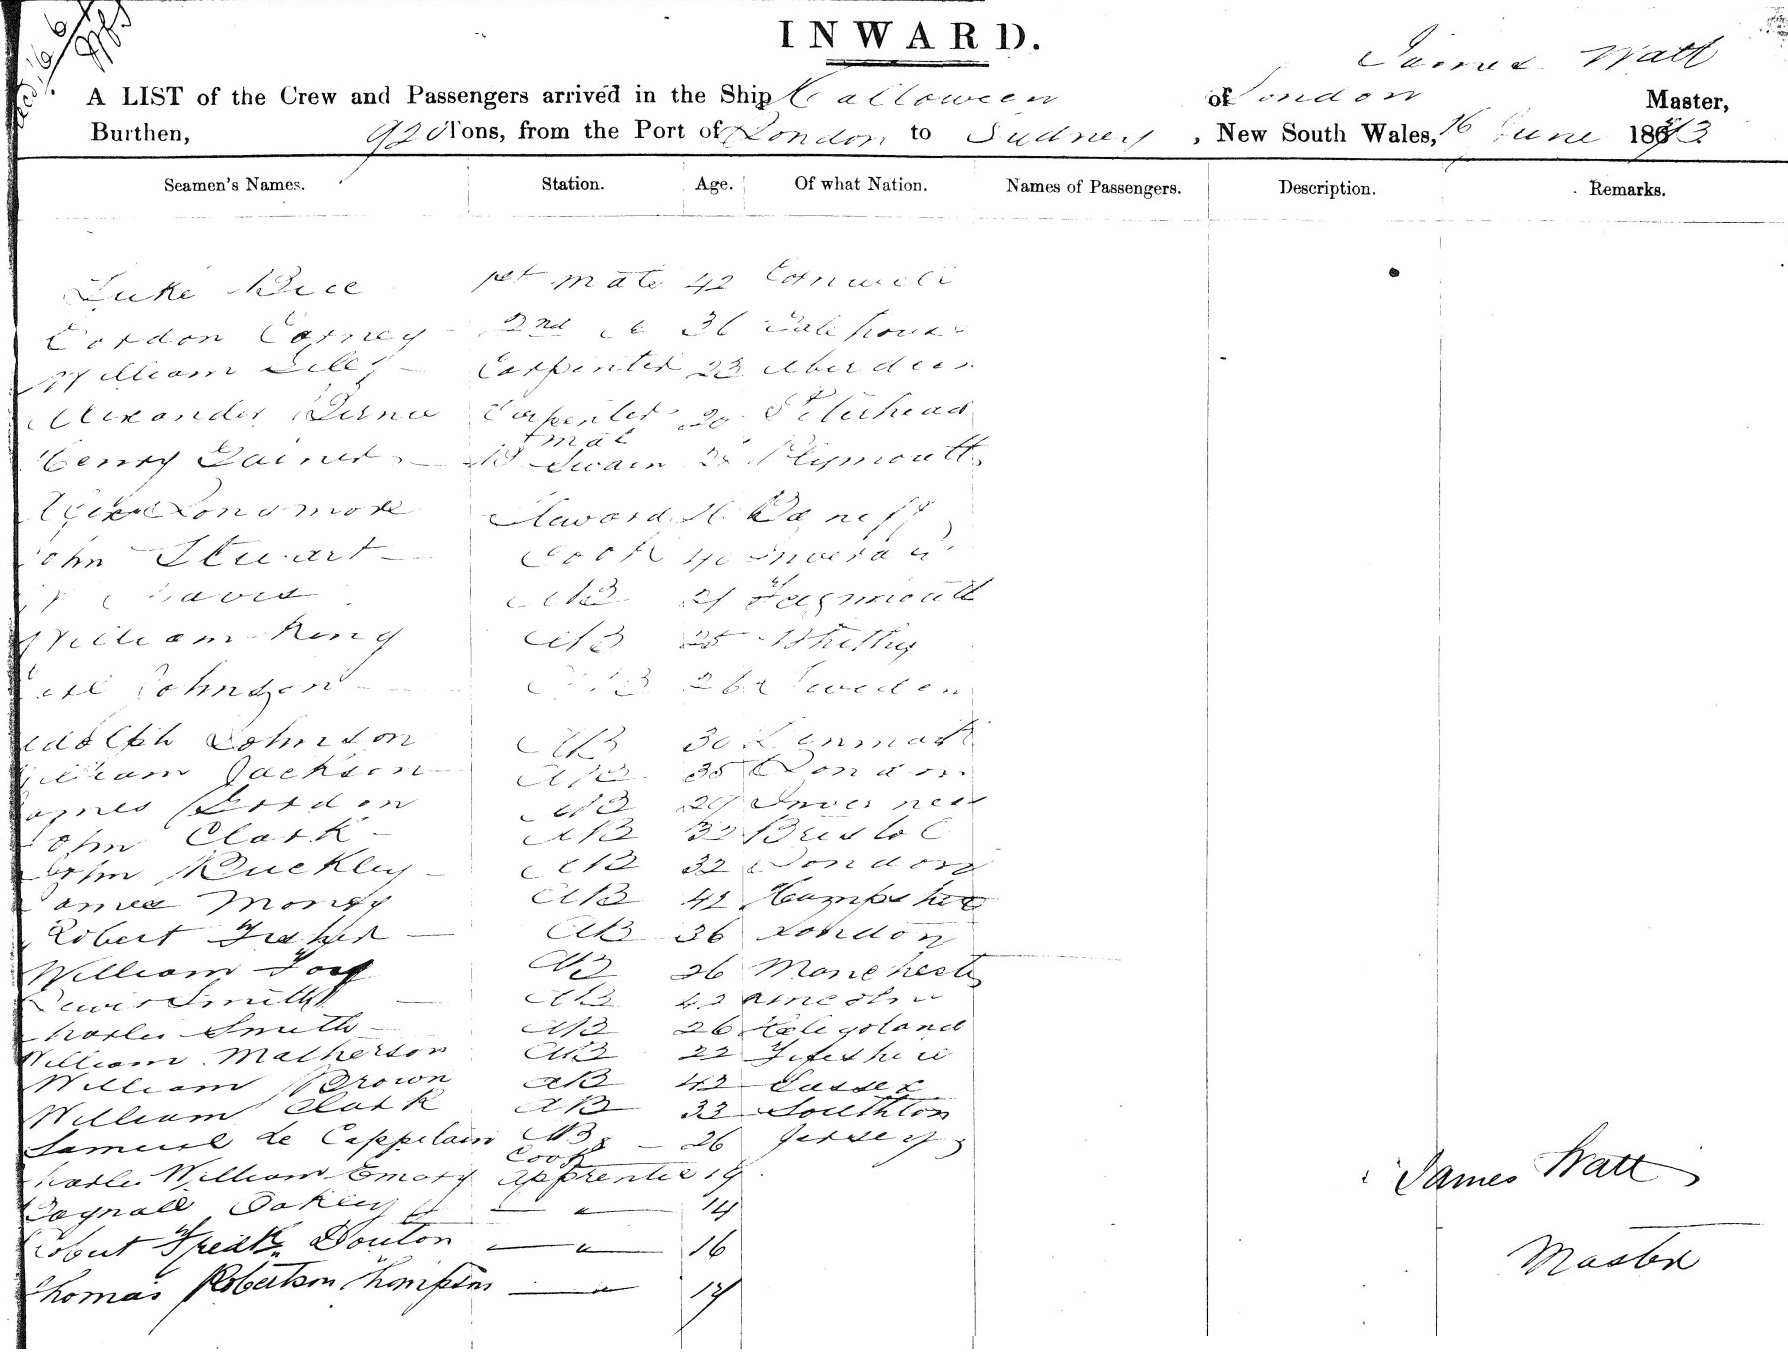 INWARD.
James Watt
A LIST of the Crew and Passengers arrived in the Ship Halloween of London Master,
Burthen, 920 Tons, from the Port of London to Sudney, New South Wales, 16 June 1873
Seamen's Names. Station. Age. Of what Nation. Names of Passengers. Description. Remarks.
Luke Rice 1st mate 42
Gordon Carney 2nd 36
William Carpenter 23 Aberdeen
Alexander Carpenter 20 Peterhead
mat
Henry B Swain Plymouth
Longmore Banff
John Stewart Cook 40
Davis AB 21
William King AB 25 Whitby
Johnson AB 26 Sweden
Adolph Johnson AB 30 Denmark
William Jackson AB 35 London
James Gordon AB 29 Inverness
John Clark AB 32 Bristol
John Buckley AB 32 London
James Money AB 42 Hampshire
Robert Fisher AB 36 London
William AB 26 Manchester
Lewis Smith AB 42 Lincoln
Charles Smith AB 26 Heligoland
William Matherson AB 22 Fifeshire
William Brown AB 42 Sussex
William Clark AB 33 Southton
Samuel Le Cappelain AB & 26 Jersey
Cook
Charles William Emory apprentice 19
Bagnall Oakley — " — 14
James Watt
Robert Douton — " — 16
Master
Thomas Robertson — " — 17